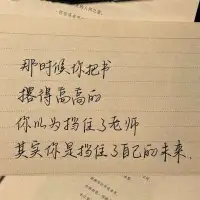 那时候你把书
摞得高高的
你以为挡住了老师
其实你是挡住了自己的未来.